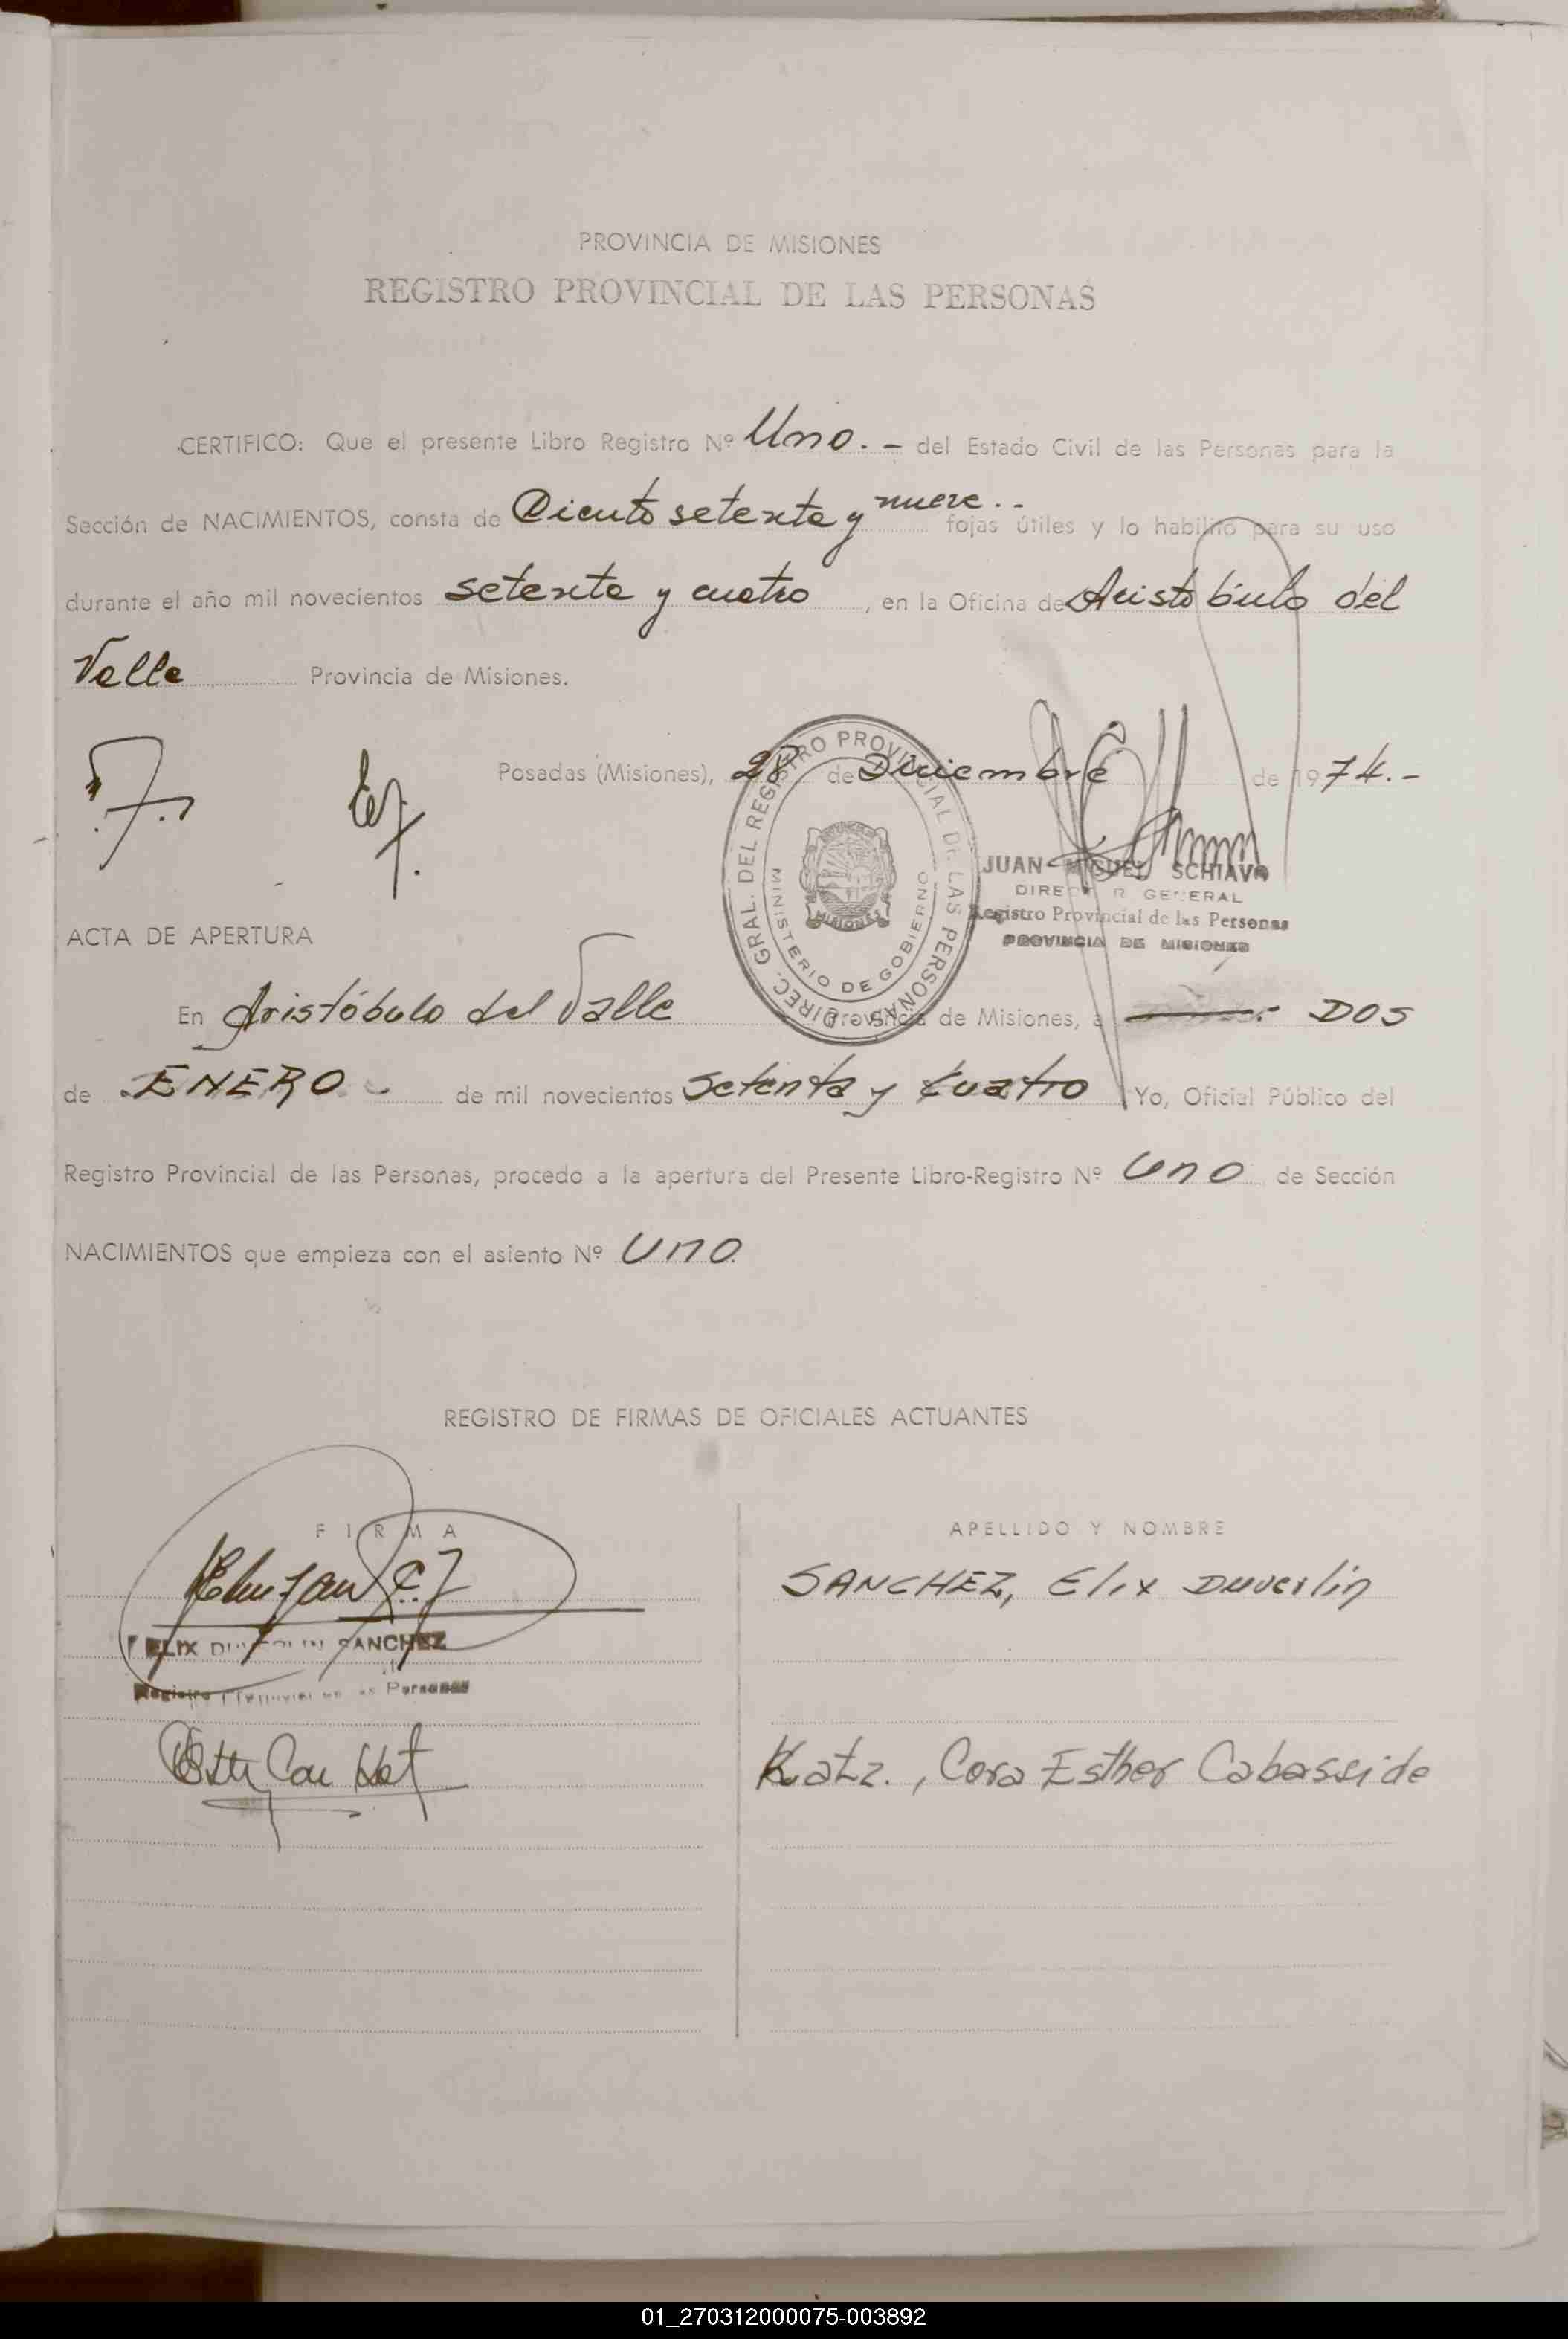 PROVINCIA DE MISIONES
REGISTRO PROVINCIAL DE LAS PERSONAS
CERTIFICO: Que el presente Libro Registro Nº Uno. - del Estado Civil de las Personas para la
Sección de NACIMIENTOS, consta de Ciento setenta y nueve.. fojas útiles y lo habilito para su uso
durante el año mil novecientos setenta y cuatro, en la Oficina de Aristóbulo del
Valle Provincia de Misiones.
Posadas (Misiones), 28 de Diciembre de 1974.-
DIREC. GRAL. DEL REGISTRO PROVINCIAL DE LAS PERSONAS
MINISTERIO DE GOBIERNO
MISIONES
JUAN MIGUEL SCHIAVO
DIRECTOR GENERAL
Registro Provincial de las Personas
PROVINCIA DE MISIONES
ACTA DE APERTURA
En Aristóbulo del Valle Provincia de Misiones, a DOS
de ENERO de mil novecientos setenta y cuatro Yo, Oficial Público del
Registro Provincial de las Personas, procedo a la apertura del Presente Libro-Registro Nº Uno de Sección
NACIMIENTOS que empieza con el asiento Nº Uno.
REGISTRO DE FIRMAS DE OFICIALES ACTUANTES
FIRMA
APELLIDO Y NOMBRE
SANCHEZ, Elix Duverlin
ELIX SANCHEZ
Registro Provincial de las Personas
Katz., Cora Esther Cabasside
01_270312000075-003892